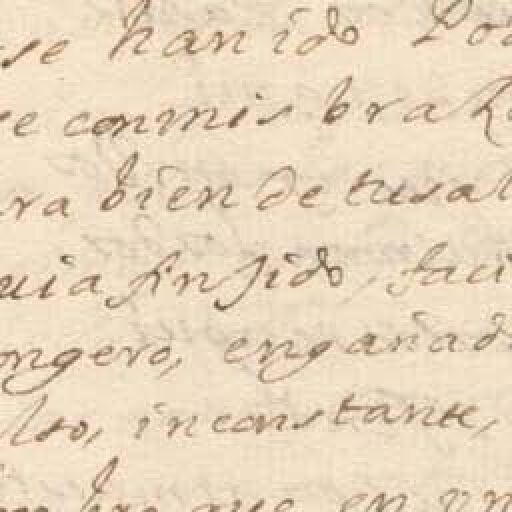 se han ido Pod
re conmis braz
ra bien de tusal
uia finjido, faci
ongero, enganad
lso, inconstante,
que en un